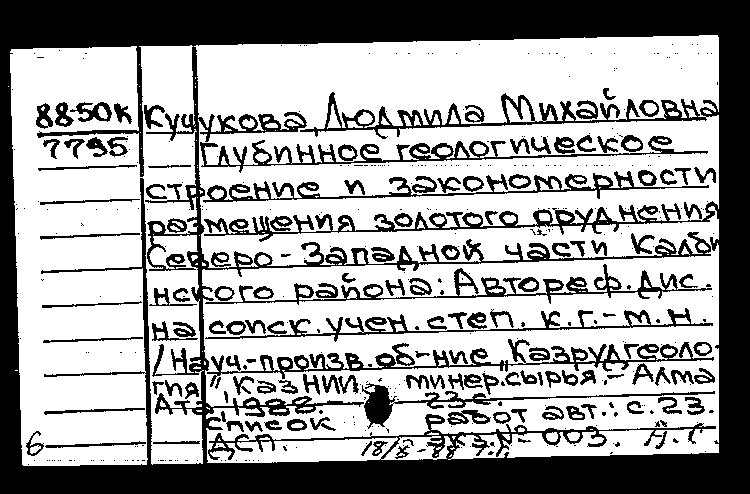 88-50К Кучукова, Людмила Михайловна
7795 Глубинное геологическое
строение и закономерности
размещения золотого оруднения
Северо-Западной части Калби
нского района: Автореф. дис.
на соиск. учен. степ. к.г.-м.н.
/Науч.-произв. об-ние "Казрудгеоло-
гия", КазНИИ минер. сырья.- Алма
Ата, 1988.- 23 с.
Список работ авт.: с. 23.
ДСП. Экз. № 003. А.С.
6 18/X-88